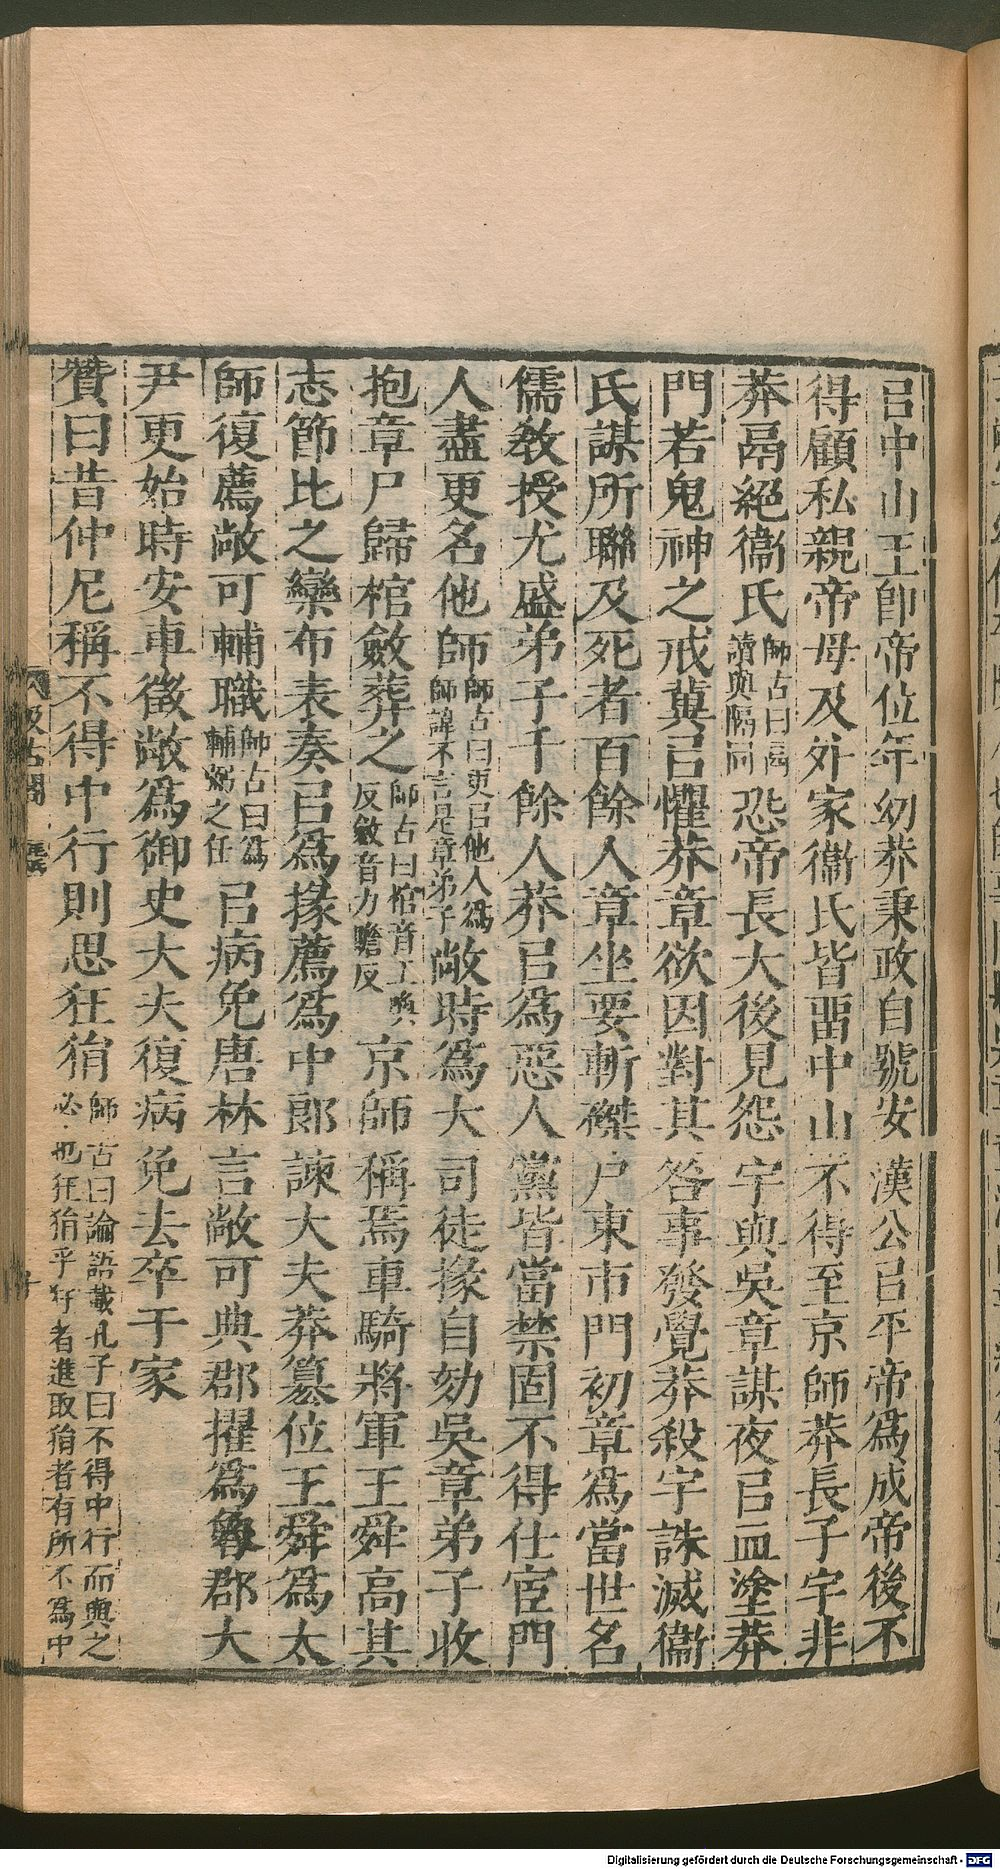 㠯中山王卽帝位年幼莽秉政自號安漢公㠯平帝爲成帝後不
得顧私親帝母及外家衞氏皆畱中山不得至京師莽長子宇非
莽鬲絕衞氏師古曰鬲讀與隔同恐帝長大後見怨宇與吳章謀夜㠯血塗莽
門若鬼神之戒冀㠯懼莽章欲因對其咎事發覺莽殺宇誅滅衞
氏謀所聯及死者百餘人章坐要斬磔尸東市門初章爲當世名
儒敎授尤盛弟子千餘人莽㠯爲惡人黨皆當禁固不得仕宦門
人盡更名他師師古曰更㠯他人爲師諱不言是章弟子敞時爲大司徒掾自劾吳章弟子收
抱章尸歸棺斂葬之師古曰棺音工喚反斂音力贍反京師稱焉車騎將軍王舜高其
志節比之欒布表奏㠯爲掾薦爲中郞諫大夫莽簒位王舜爲太
師復薦敞可輔職師古曰爲輔弼之任㠯病免唐林言敞可典郡擢爲魯郡大
尹更始時安車徵敞爲御史大夫復病免去卒于家
贊曰昔仲尼稱不得中行則思狂狷師古曰論語載孔子曰不得中行而與之必也狂狷乎狂者進取狷者有所不爲中
汲古閣
Digitalisierung gefördert durch die Deutsche Forschungsgemeinschaft - DFG